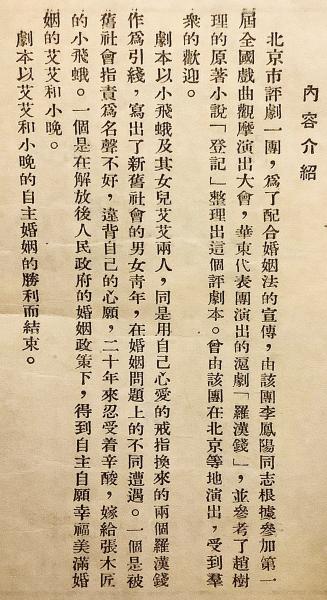 內容介紹
北京市評劇一團，爲了配合婚姻法的宣傳，由該團李鳳陽同志根據參加第一
屆全國戲曲觀摩演出大會，華東代表團演出的滬劇「羅漢錢」，並參考了趙樹
理的原著小說「登記」整理出這個評劇本。曾由該團在北京等地演出，受到羣
衆的歡迎。
劇本以小飛蛾及其女兒艾艾兩人，同是用自己心愛的戒指換來的兩個羅漢錢
作爲引綫，寫出了新舊社會的男女青年，在婚姻問題上的不同遭遇。一個是被
舊社會指責爲名聲不好，違背自己的心願，二十年來忍受着辛酸，嫁給張木匠
的小飛蛾。一個是在解放後人民政府的婚姻政策下，得到自主自願幸福美滿婚
姻的艾艾和小晚。
劇本以艾艾和小晚的自主婚姻的勝利而結束。